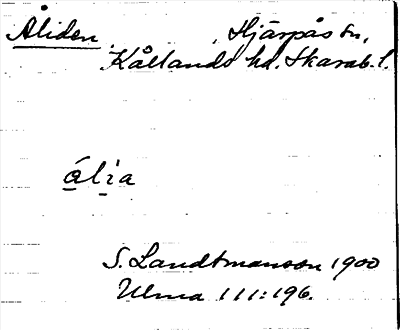 Åliden, Hjärpås sn,
Kållands hd. Skarab. l.
ália
S. Landtmanson 1900
Ulma 111:196.